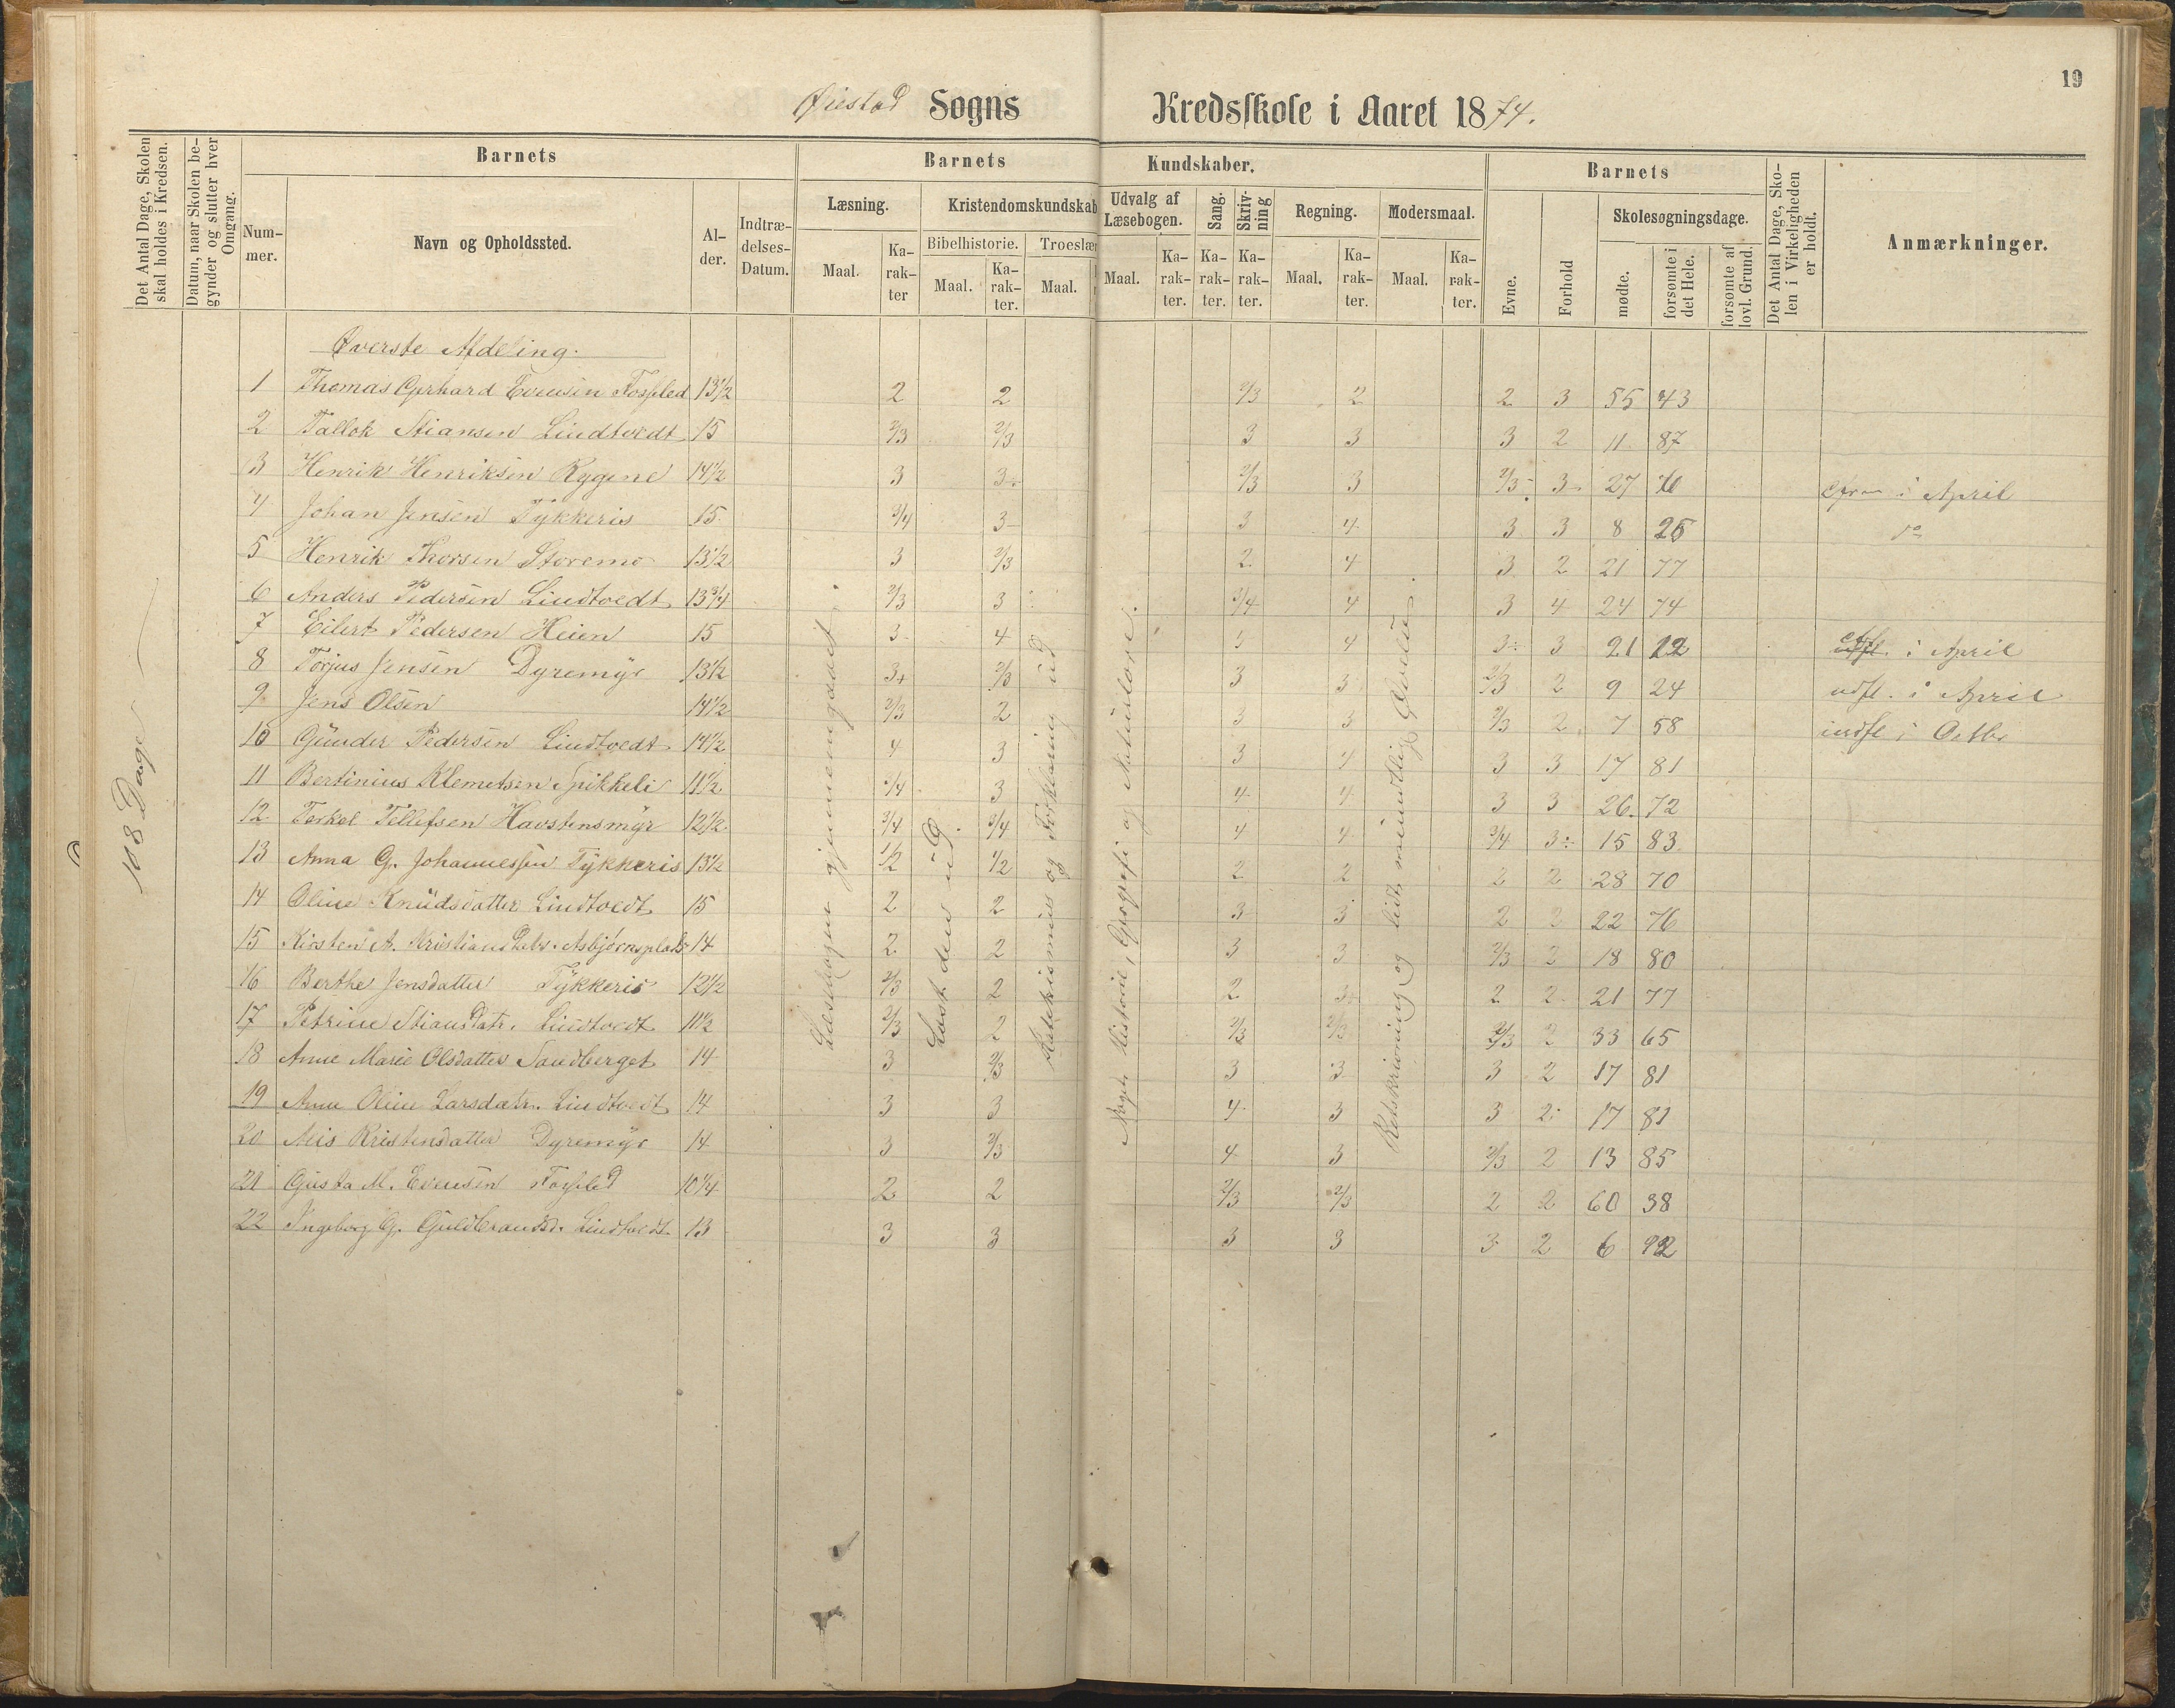 19
Øiestad Sogns Kredsskole i Aaret 1874.
Det Antal Dage, Skolen skal holdes i Kredsen.
Datum, naar Skolen begynder og slutter hver Omgang.
Barnets
Nummer.
Navn og Opholdssted.
Alder.
Indtrædelses-Datum.
Barnets Kundskaber.
Læsning.
Maal.
Karakter
Kristendomskundskab
Bibelhistorie.
Maal.
Karakter.
Troeslær
Maal.
Udvalg af Læsebogen.
Maal.
Karakter.
Sang.
Karakter.
Skrivning
Karakter.
Regning.
Maal.
Karakter.
Modersmaal.
Maal.
Karakter.
Barnets
Evne.
Forhold
Skolesøgningsdage.
mødte.
forsømte i det Hele.
forsømte af lovl. Grund.
Det Antal Dage, Skolen i Virkeligheden er holdt.
Anmærkninger.
108 Dage
Øverste Afdeling.
1 Thomas Gerhard Evensen Fosseled 13 1/2 2 2 2/3 2 2 3 55 43
2 Tallok Stiansen Lindtvedt 15 2/3 2/3 3 3 3 2 11 87
3 Henrik Henriksen Rygene 14 1/2 3 3÷ 2/3 3 2/3 3 27 i April
4 Johan Jensen Tykkeris 15 3/4 3 3 4 3 3 8 25 do
5 Henrik Thorsen Storemo 13 1/2 3 2/3 2 4 3 2 21 77
6 Anders Pedersen Lindtvedt 13 3/4 2/3 3 3/4 4 3 4 24 74
7 Eilert Pedersen Heien 15 3 4 3 4 3÷ 3 21 12 i April
8 Torjus Jensen Dyremyr 13 1/2 3+ 2/3 3 3 2/3 2 9 24 udfl. i April
9 Jens Olsen 14 1/2 2/3 2 3 3 2/3 2 7 58 indfl i Octbr
10 Gunder Pedersen Lindtvedt 14 1/2 4 3 3 4 3 3 17 81
11 Bertinius Klemetsen Spikkeli 11 1/2 3/4 3 4 4 3 3 26 72
12 Terkel Tellefsen Havstensmyr 12 1/2 3/4 3/4 4 4 3/4 3÷ 15 83
13 Anna G. Johannessen Tykkeris 13 1/2 1/2 1/2 2 2 2 2 28 70
14 Oline Knudsdatter Lindtvedt 15 2 2 3 3 2 2 22 76
15 Kirsten A. Kristiansdatr. Asbjørnsplads 14 2 2 3 3 2/3 2 18 80
16 Berthe Jensdatter Tykkeris 12 1/2 2/3 2 2 3÷ 2 2 21 77
17 Petrine Stiansdatr. Lindtvedt 11 1/2 2/3 2 2/3 2/3 2/3 2 33 65
18 Anne Marie Olsdatter Sandberget 14 3 2/3 3 3 3 2 17 81
19 Anne Oline Larsdatr. Lindtvedt 14 3 3 4 3 3 2 17 81
20 Kristensdatter Dyremyr 14 3 2/3 4 3 2/3 2 13 85
21 Gusta M. Evensen Fosseled 10 1/4 2 2 2/3 2/3 2 2 60 38
22 Ingeborg G. Guldbrandsd. Lindtvedt 13 3 3 3 3 3 2 6 92
Læsebogen gjennemgaaet.
Læst den ud.
Katekismus og Forklaring ud
Noget Historie, Geografi og Naturhistorie.
Retskrivning og lidt mundtlig Øvelse.